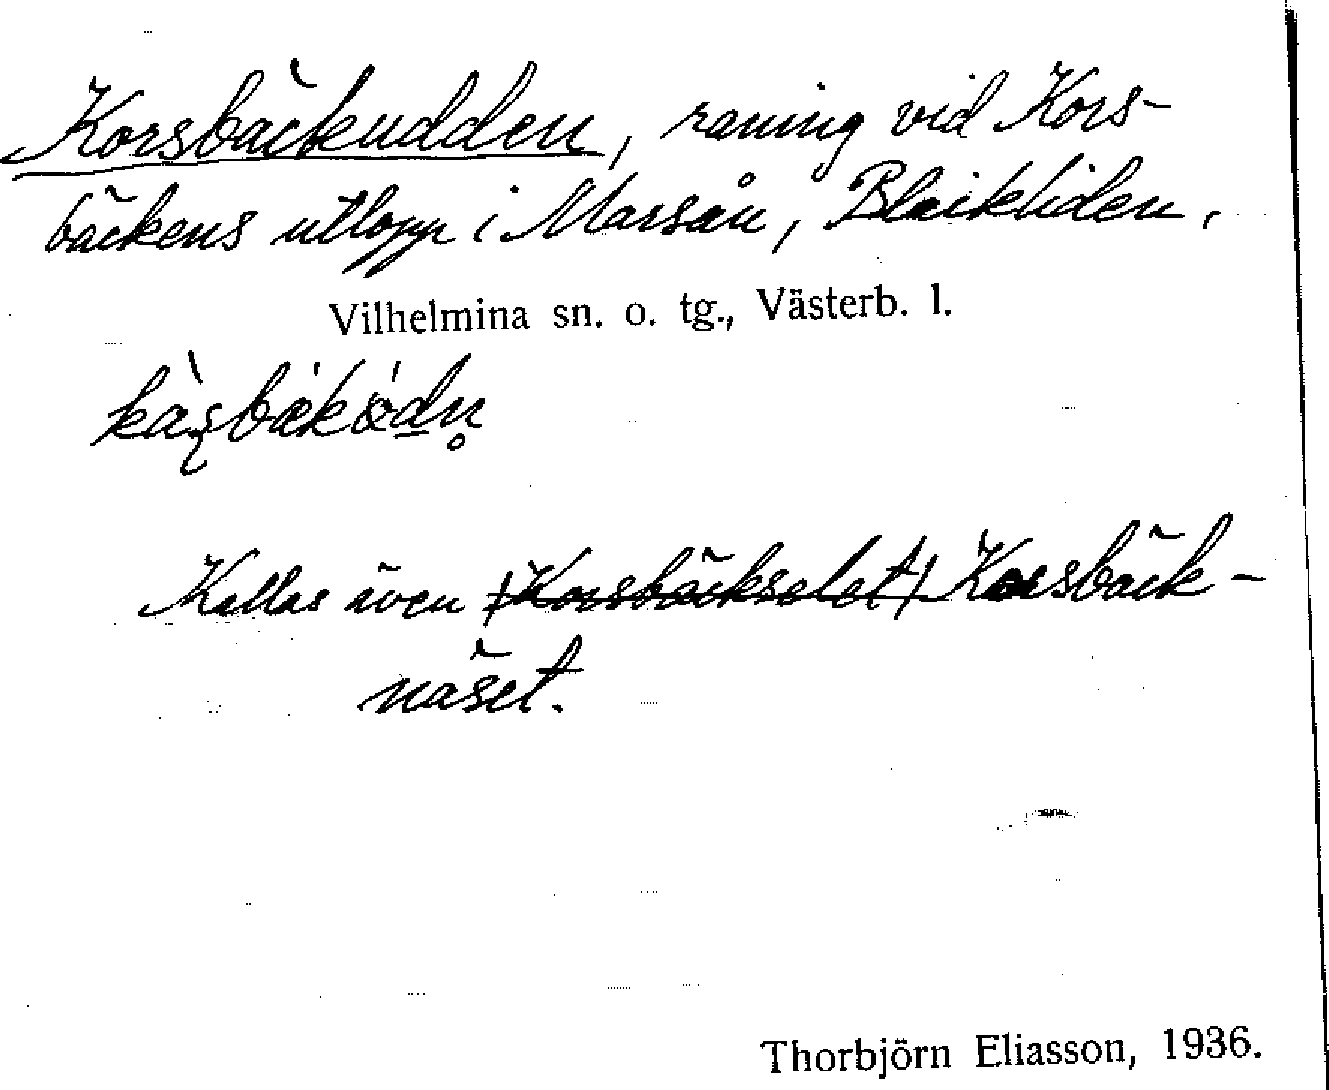 Korsbäckudden, raning vid Kors-
bäckens utlopp i Marsån, Blaikliden.
Vilhelmina sn. o. tg., Västerb. l.
Kallas även (Korsbäckselet) Korsbäck-
näset.
Thorbjörn Eliasson, 1936.